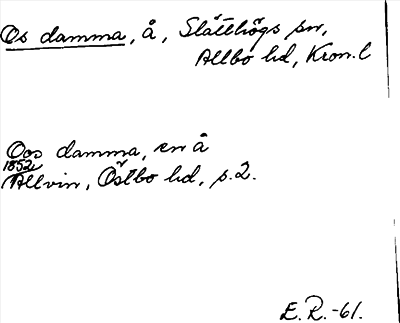 Os damma, å, Slätthögs sn,
Allbo hd, Kron. l
Oos damma, en å
1852
Allvin, Östbo hd, s. 2.
E. R. -61.